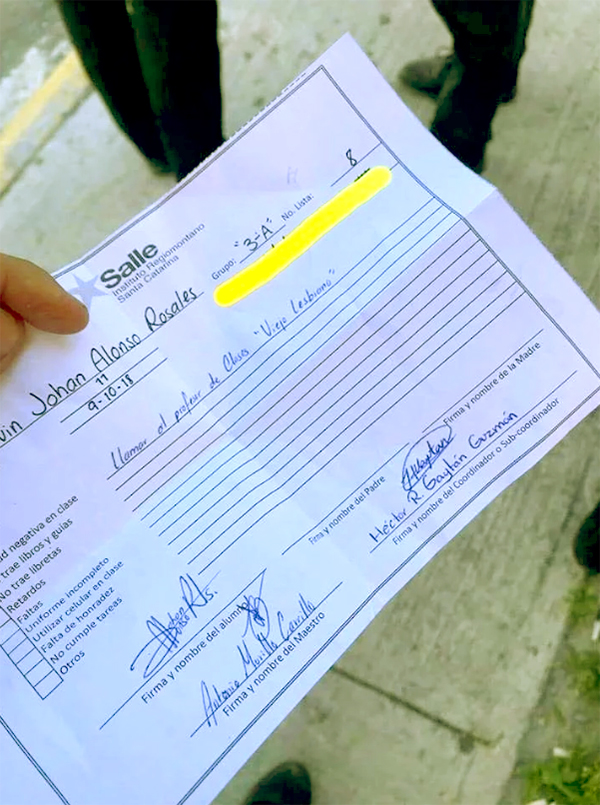 Salle
Instituto Regiomontano
Santa Catarina
Grupo: "3-A" No. Lista: 8
vin Johan Alonso Rosales
11
9-10-18
Llamar al profesr de Clases "Viejo Lesbiano"
d negativa en clase
trae libros y guías
No trae libretas
Retardos
Faltas
Uniforme incompleto
Utilizar celular en clase
Falta de honradez
No cumple tareas
Otros
Firma y nombre de la Madre
Firma y nombre del Padre
Héctor R. Gaytán Guzmán
Firma y nombre del Coordinador o Sub-coordinador
Firma y nombre del alumno
Antonio Murillo Carrillo
Firma y nombre del Maestro